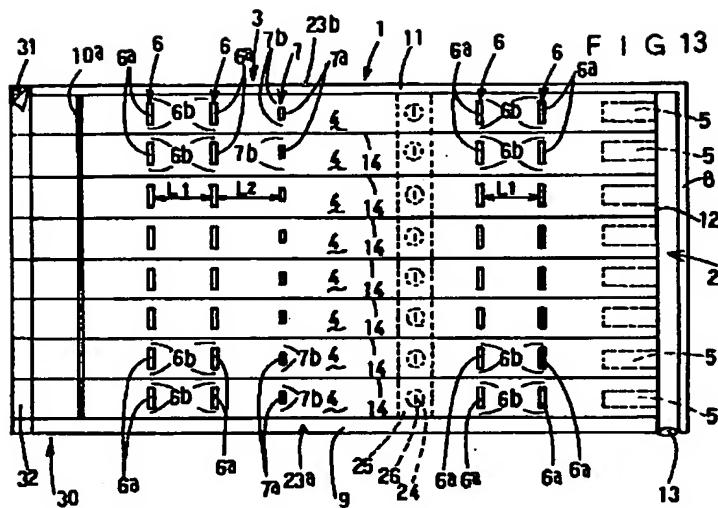 FIG 13
31 10a 6a 6 6 6a 3 7b 7 23b 7a 1 11 6a 6 6 6a
6b 4 1 6b 5
6b 7b 4 14 1 6b 5
L1 L2 4 14 1 L1 8
4 14 1 12
4 14 1 2
4 14 1
6b 7b 4 14 1 6b 5
6b 7b 4 14 1 6b 5
6a 6a
32 30 6a 6a 7a 23a 9 25 26 24 6a 6a 6a 6a 13